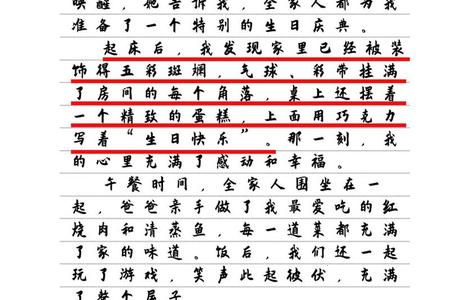 唤醒，她告诉我，全家人都为我
准备了一个特别的生日庆典。
起床后，我发现家里已经被装
饰得五彩斑斓，气球、彩带挂满
了房间的每个角落，桌上还摆着
一个精致的蛋糕，上面用巧克力
写着“生日快乐”。那一刻，我
的心里充满了感动和幸福。
午餐时间，全家人围坐在一
起，爸爸亲手做了我最爱吃的红
烧肉和清蒸鱼，每一道菜都充满
了家的味道。饭后，我们还一起
玩了游戏，笑声此起彼伏，充满
了整个屋子